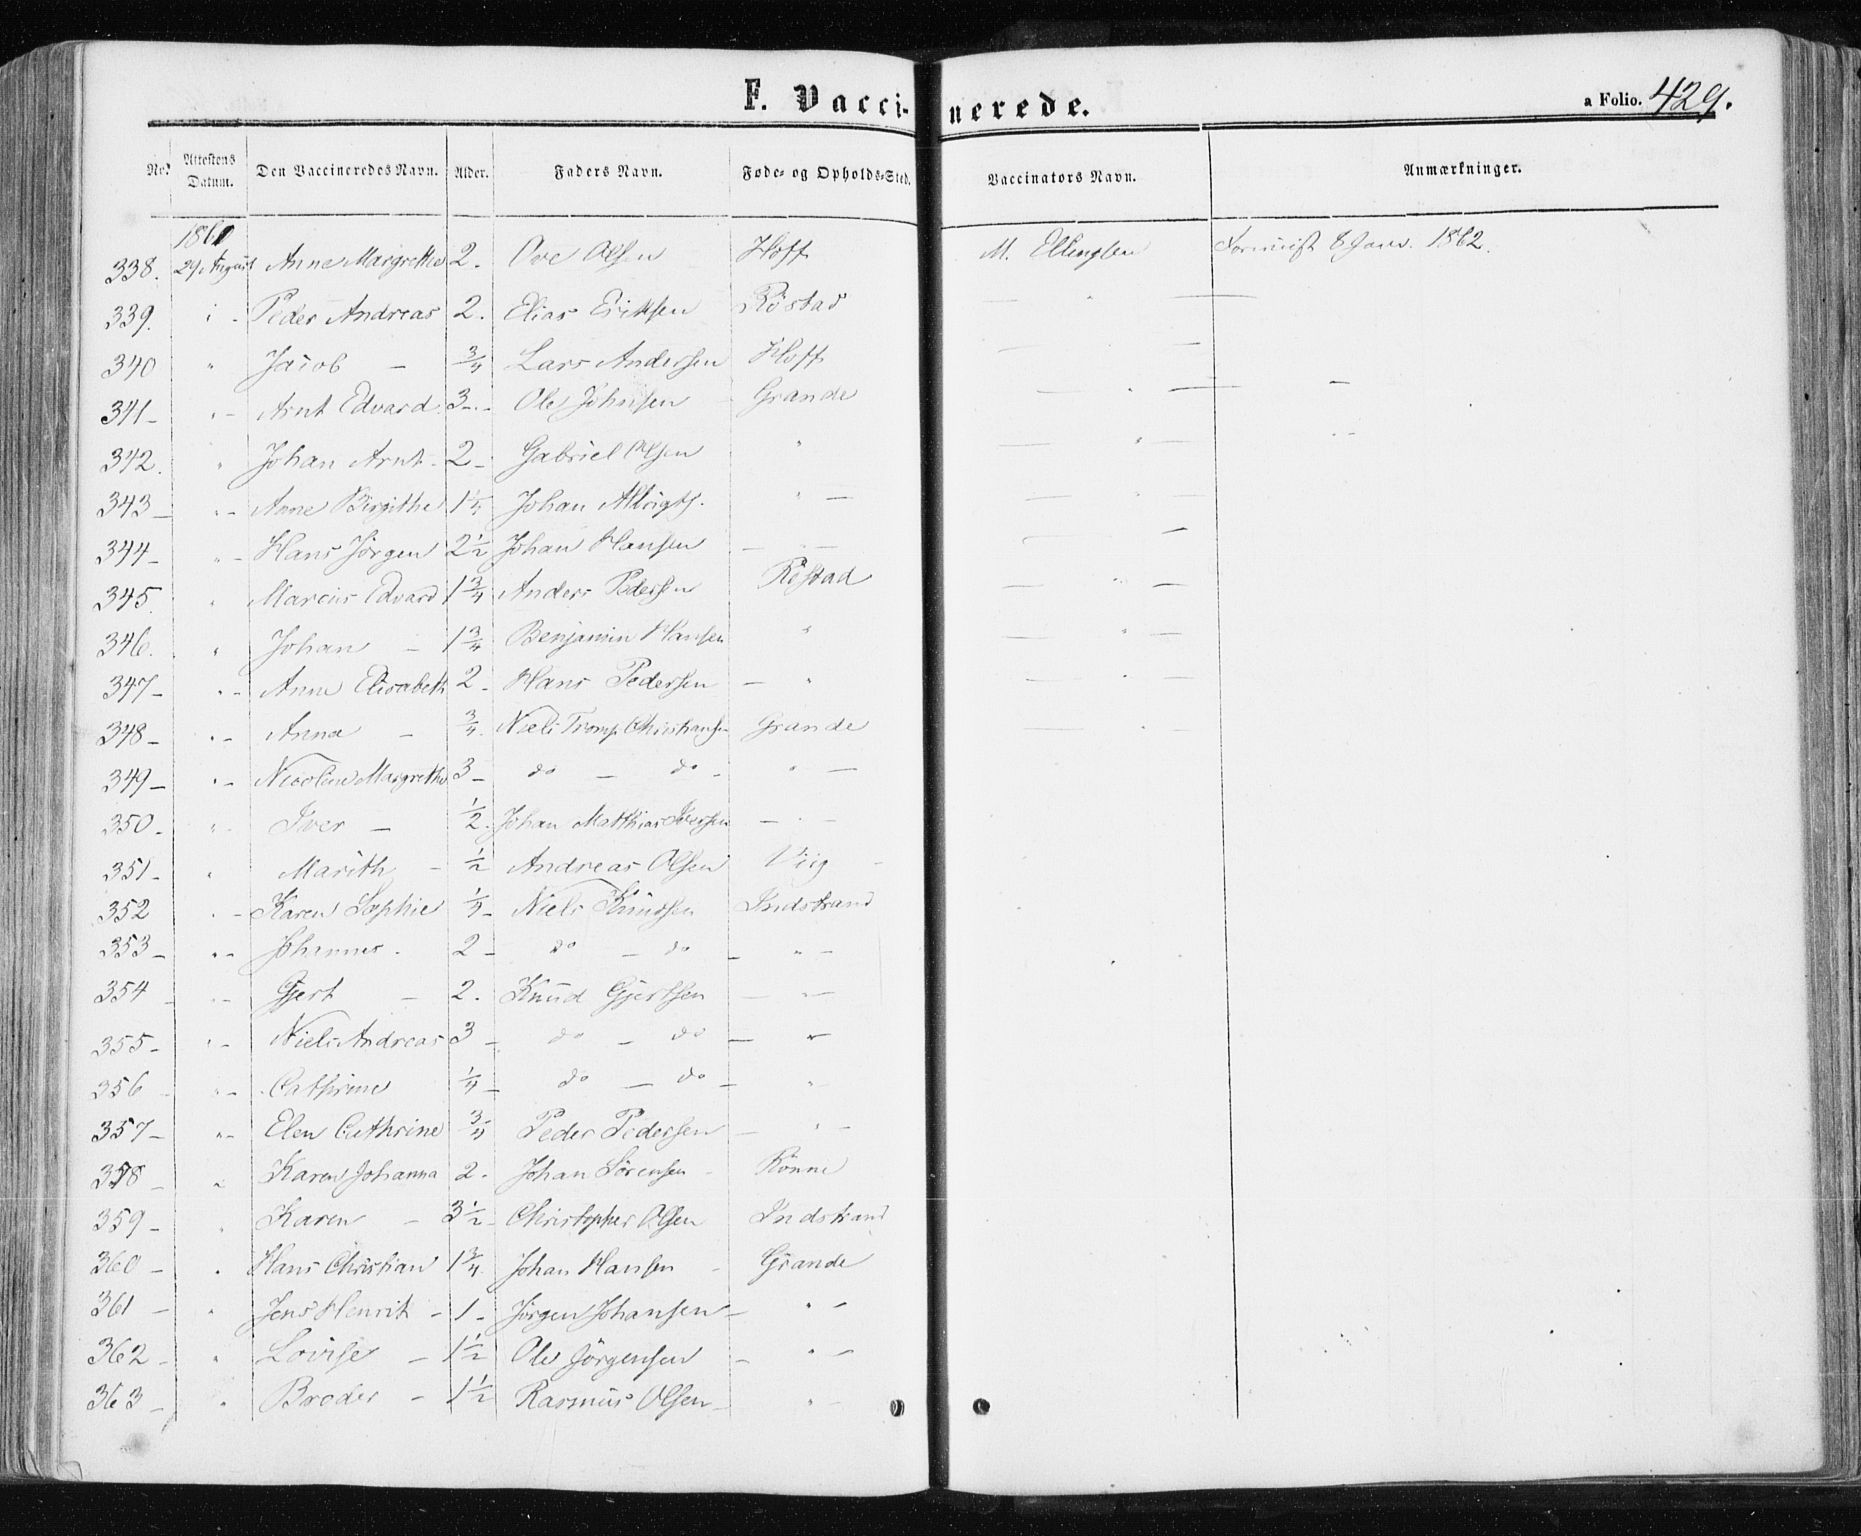 F. Vaccinerede.
a Folio. 429.
No. Attestens Datum. Den Vaccineredes Navn. Alder. Faders Navn. Føde- og Opholds-Sted. Vaccinators Navn. Anmærkninger.
1861
338. 29 August Anne Margrethe 2. Ove Olsen Hoff M. Ellingsen 8 Janv. 1862.
339. " - Peder Andreas 2. Elias Eriksen Röstad — " —
340 " Jacob - 3/4 Lars Andersen Hoff — " —
341 - " - Arnt Edvard 3 - Ole Johnsen - Grande — " — —
342. " Johan Arnt - 2 - Gabriel Olsen " — " — " -
343 - " - Anne Birgithe 1 1/4 Johan " — — " —
344 - " - Hans Jörgen 2 1/2 Johan Hansen — " — — —
345. " Marcus Edvard 1 3/4 Anders Pedersen Röstad — " —
346. " Johan - 1 3/4 Benjamin Hansen " — " —
347 - " - Anne Elisabeth 2 - Hans Pedersen — " — " —
348 - " - Anna - 3/4 Niels Tromp Christiansen Grande — " —
349 - " - Nicoline Margrethe 3 - do - do - " —
350 - " - Iver - 1/2. Johan Matthias Iversen — " —
351 - " Marith - 1/2 Andreas Olsen Viig -
352 " - Karen Sophie 1/4 - Niels Knudsen Indstrand
353 - " - Johannes - 2 - do - do - " -
354 - " - Gjert - 2. Knud Gjertsen — " —
355 - " - Niels Andreas 3 - do - do — "
356 - " - Cathrine 1/4 - do - do - "
357 - " - Elen Cathrine 3/4 Peder Pedersen — " -
358 - " Karen Johanna 2 - Johan Sörensen - Rönne
359 - " Karen - 3 1/2 - Christopher Olsen Indstrand
360 - " Hans Christian 1 3/4. Johan Hansen - Grande
361 - " Jens Henrik - 1 - Jörgen Johansen - " -
362 - " Lovise - 1 1/2 Ole Jörgensen - " -
363 - " Broder - 1 1/2 Rasmus Olsen - " -